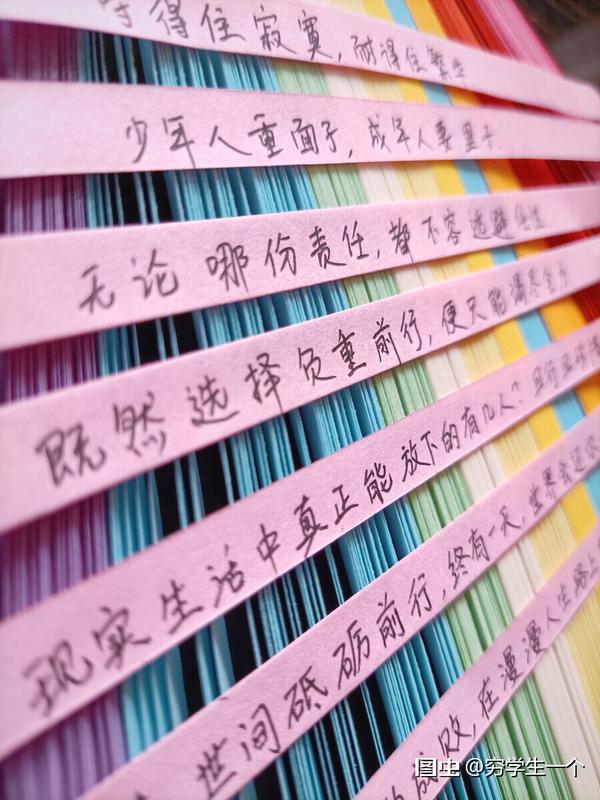 守得住寂寞,耐得住繁华
少年人重面子,成年人要里子.
无论哪份责任,都不容逃避任性
既然选择负重前行,便只能竭尽全力
现实生活中真正能放下的有几人?且行且珍惜
世间砥砺前行,终有一天,世界会还你
成败,在漫漫人生路上
图虫@穷学生一个